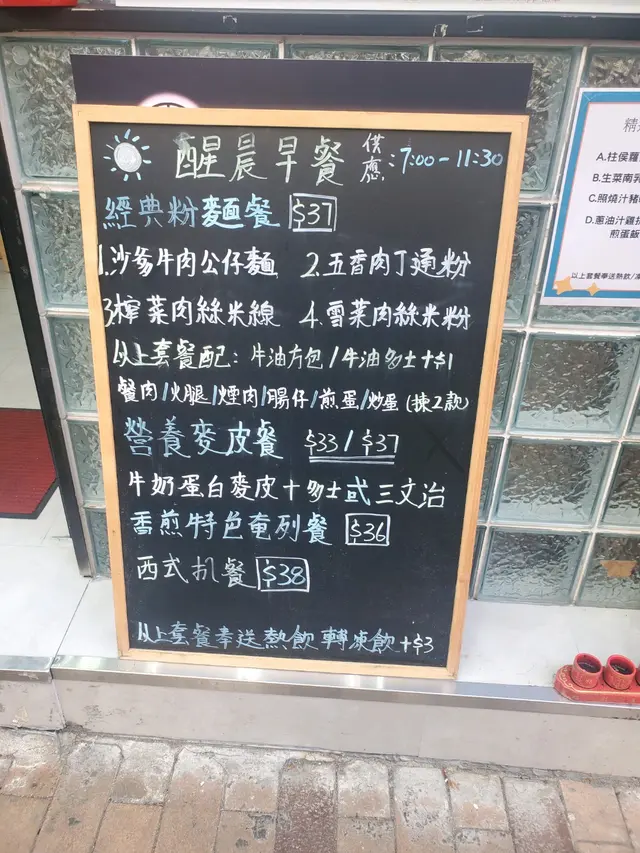 醒晨早餐 供應:7:00-11:30
經典粉麵餐 $37
1.沙爹牛肉公仔麵 2.五香肉丁通粉
3.榨菜肉絲米線 4.雪菜肉絲米粉
以上套餐配:牛油方包/牛油多士+$1
餐肉/火腿/煙肉/腸仔/煎蛋/炒蛋(揀2款)
營養麥皮餐 $33/$37
牛奶蛋白麥皮+多士或三文治
香煎特色奄列餐 $36
西式扒餐 $38
以上套餐奉送熱飲 轉凍飲+$3
A.柱侯蘿
B.生菜南乳
C.照燒汁豬
D.蔥油汁雞
煎蛋飯
以上套餐奉送熱飲/凍